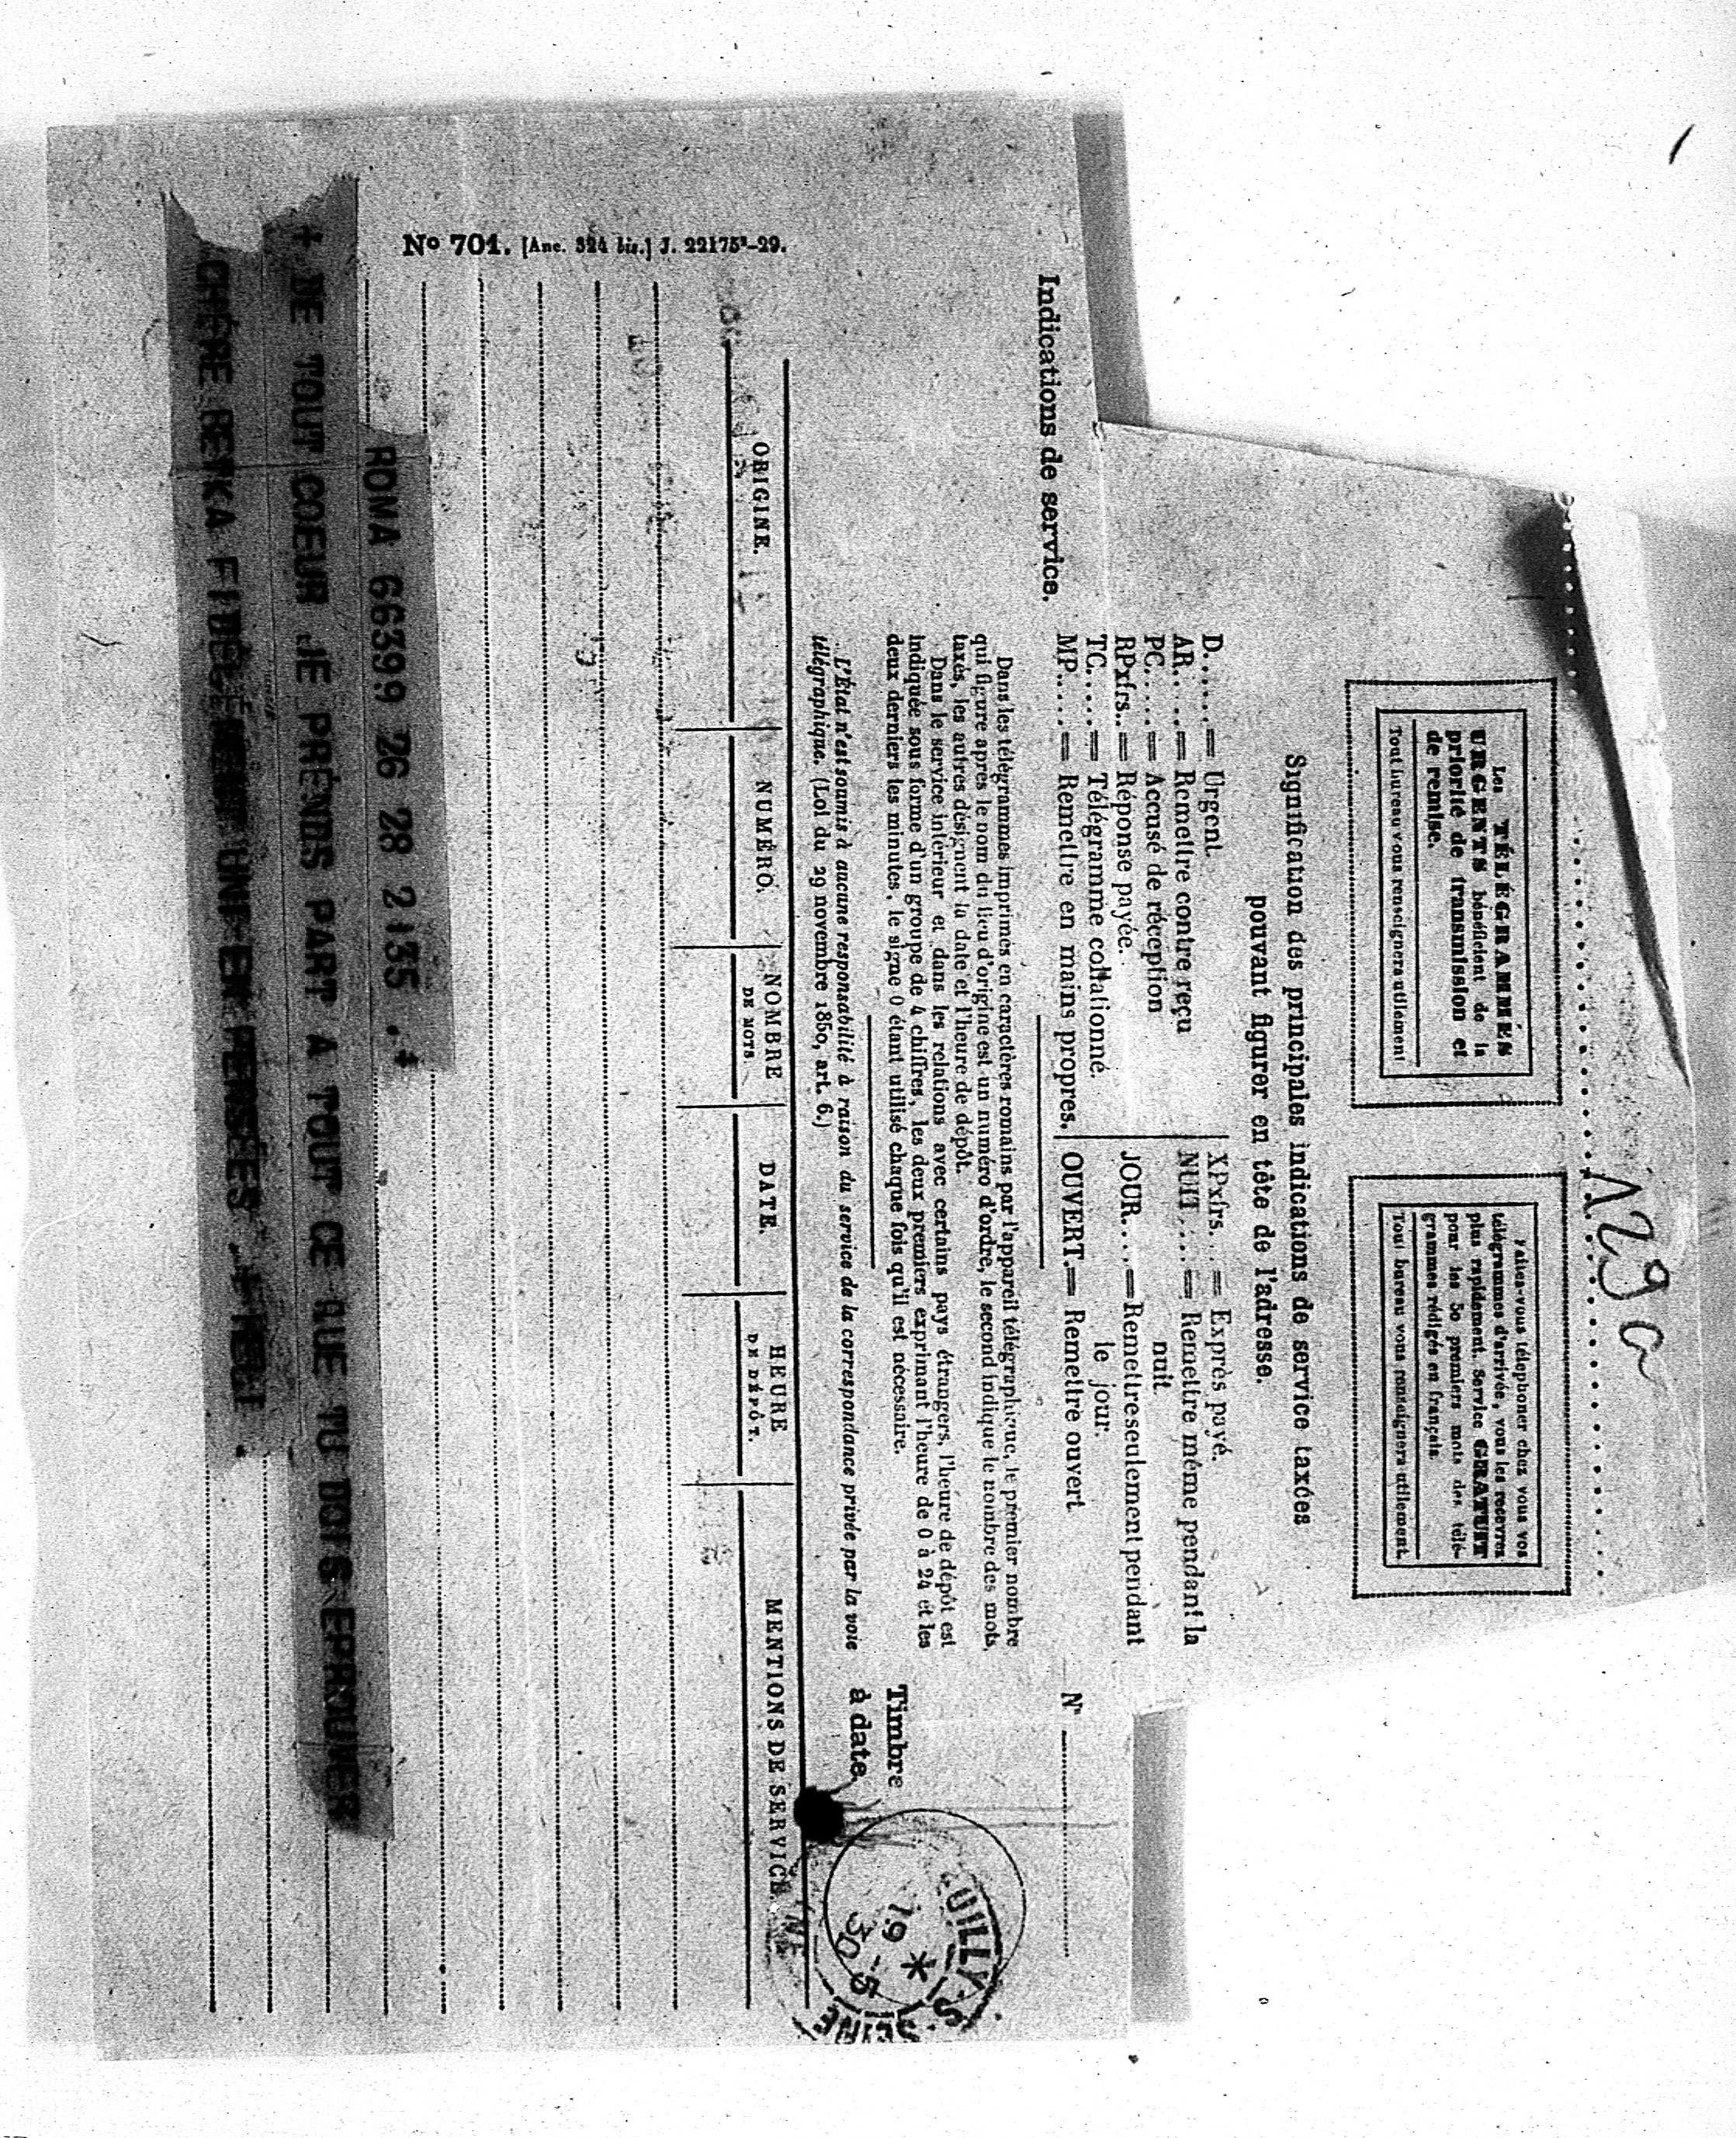 129a
Les TÉLÉGRAMMES
URGENTS bénéficient de la
priorité de transmission et
de remise.
Tout bureau vous renseignera utilement
Faites-vous téléphoner chez vous vos
télégrammes d'arrivée, vous les recevrez
plus rapidement. Service GRATUIT
pour les 50 premiers mots des télé-
grammes rédigés en français.
Tout bureau vous renseignera utilement.
Signification des principales indications de service taxées
pouvant figurer en tête de l'adresse.
Indications de service.
D...... = Urgent.
AR..... = Remettre contre reçu
PC..... = Accusé de réception
RPxfrs.. = Réponse payée.
TC..... = Télégramme collationné.
MP..... = Remettre en mains propres.
XPxfrs... = Exprès payé.
NUIT.... = Remettre même pendant la
nuit
JOUR.... = Remettre seulement pendant
le jour.
OUVERT. = Remettre ouvert
N°
Dans les télégrammes imprimés en caractères romains par l'appareil télégraphique, le premier nombre
qui figure après le nom du lieu d'origine est un numéro d'ordre, le second indique le nombre des mots
taxés, les autres désignent la date et l'heure de dépôt.
Dans le service intérieur et dans les relations avec certains pays étrangers, l'heure de dépôt est
indiquée sous forme d'un groupe de 4 chiffres, les deux premiers exprimant l'heure de 0 à 24 et les
deux derniers les minutes, le signe 0 étant utilisé chaque fois qu'il est nécessaire.
L'État n'est soumis à aucune responsabilité à raison du service de la correspondance privée par la voie
télégraphique. (Loi du 29 novembre 1850, art. 6.)
Timbre
à date
UILLY-S-SEINE
19
30-5
ORIGINE.
NUMÉRO.
NOMBRE
DE MOTS.
DATE.
HEURE
DE DÉPÔT.
MENTIONS DE SERVICE
N° 701. [Anc. 324 bis.] J. 22175²-29.
ROMA 66399 26 28 2135 . +
+ DE TOUT COEUR JE PRENDS PART A TOUT CE QUE TU DOIS EPROUVER
CHERE BERKA FIDÈLEMENT UNE EN PENSÉES